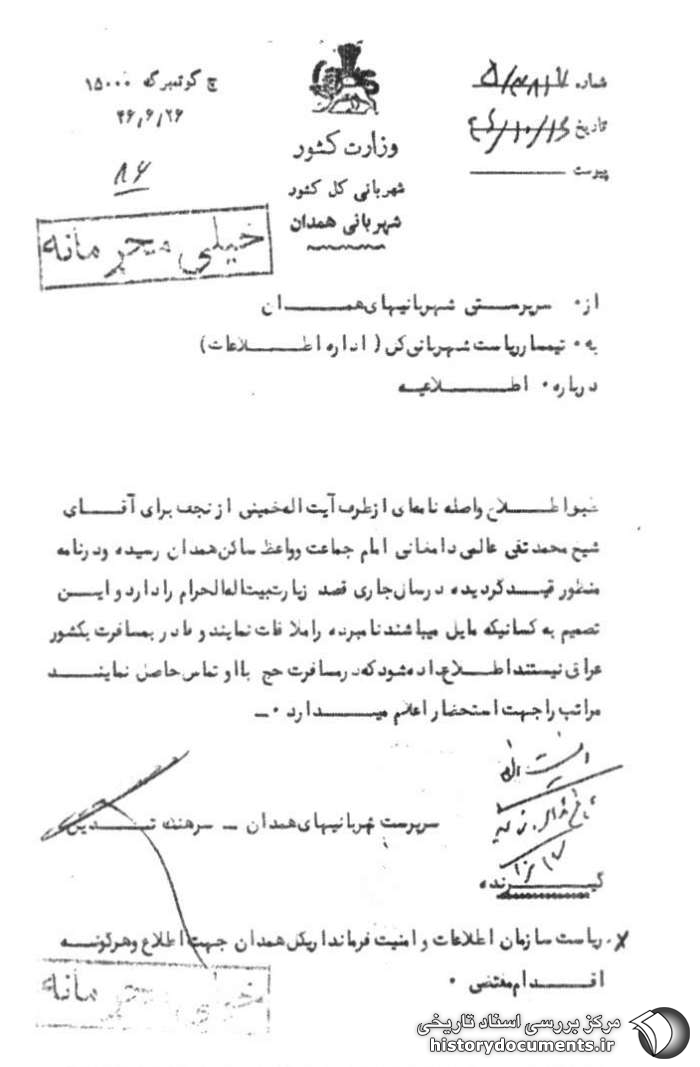 شماره ۵/۴۸۱۷
تاریخ ۴۶/۱۰/۱۶
پیوست
چ گوتمبرگ ۱۵۰۰۰
۴۶٫۶٫۲۶
۸۶
وزارت کشور
شهربانی کل کشور
شهربانی همدان
خیلی محرمانه
از۰ سرپرستی شهربانیهای همـــدان
به۰ تیمسار ریاست شهربانی کل ( اداره اطـــلاعات )
درباره۰ اطـــلاعیه
طبق اطـــلاع واصله نامه‌ای از طرف آیت اله خمینی از نجف برای آقـــای
شیخ محمد تقی عالمی دامغانی امام جماعت و واعظ ساکن همدان رسیده و در نامه
منظور قیـــد گردیده در سال جاری قصد زیارت بیت اله الحرام را دارد و ایـــن
تصمیم به کسانیکه مایل میباشند نامبرده را ملاقات نمایند و قادر بمسافرت بکشور
عراق نیستند اطـــلاع داده شود که در مسافرت حج با او تماس حاصل نماینـــد
مراتب را جهت استحضار اعلام میـــدارد ۰ ـ
سرپرست شهربانیهای همدان ـ سرهنگ تـــدین
گیـــرنده
×. ریاست سازمان اطلاعات و امنیت فرمانداریکل همدان جهت اطلاع و هرگونـــه
اقـــدام مقتضی ۰
خیلی محرمانه
مرکز بررسی اسناد تاریخی
historydocuments.ir